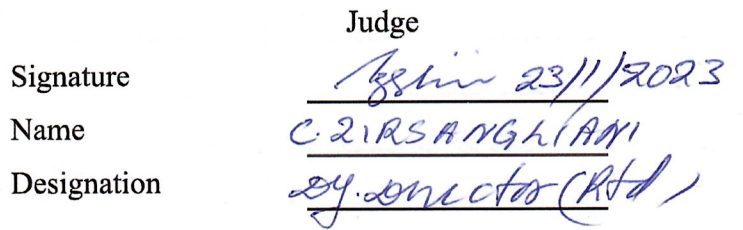 Judge
Signature 23/1/2023
Name C. ZIRSANGLIANI
Designation Dy. Director (Rtd)